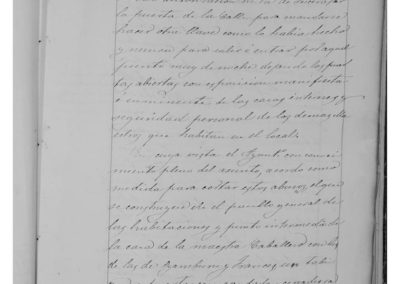 la puerta de la Calle para mandarse
hacer otra llave como la habia hecho
y menos para salir o entrar por aquel
puente muy de noche dejando las puer
tas abiertas con esposicion manifiesta
e inminente de las casas internas y
seguridad personal de los demas ella
estros que habitan en el local.
En cuya vista el Ayunt.º con conoci
miento pleno del asunto, acordo como
medida para evitar estos abusos, el que
se construyese de el pasillo general de
las habitaciones y punto intermedio de
la casa de la maestra Caballero con las
de las de Zamburu y Frances, un tabi